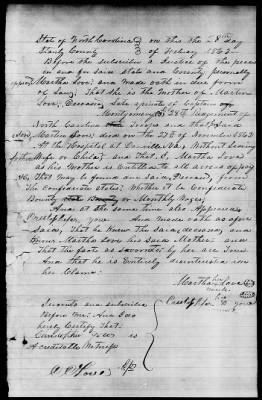 State of North Carolina } on this the 28th day
Stanly County } of Febuy 1863
Before the subscriber a Justice of the peace
in and for said state and County personally
appeared Martha Love and made oath in due form
of Law, That she is the mother of Martin
Love, Deceased late private of Captain
Montgomery 28th Regiment of
North Carolina Troops and the aforesaid
Martin Love died on the 27th of November 1862
At the Hospital at Danville Va, Without Leaving
Wife or Child, and That I, Martha Love
as his mother is Entitled to all arears of pay
That may be found due said, Deceased, from
The Confederate States Whether it be Confederate
Bounty or Monthly Wages
And at the same time also Appeared
and made oath as afore
said, That he knew The said, deceased, and
knows Martha Love his said Mother and
That the facts as favored by her are True
And that he is Entirely disinterested in
her Claims.
Martha her Love
mark
his
Sworn and subscribed
Before me: And I do
hereby Certify That
is
A creditable Witness